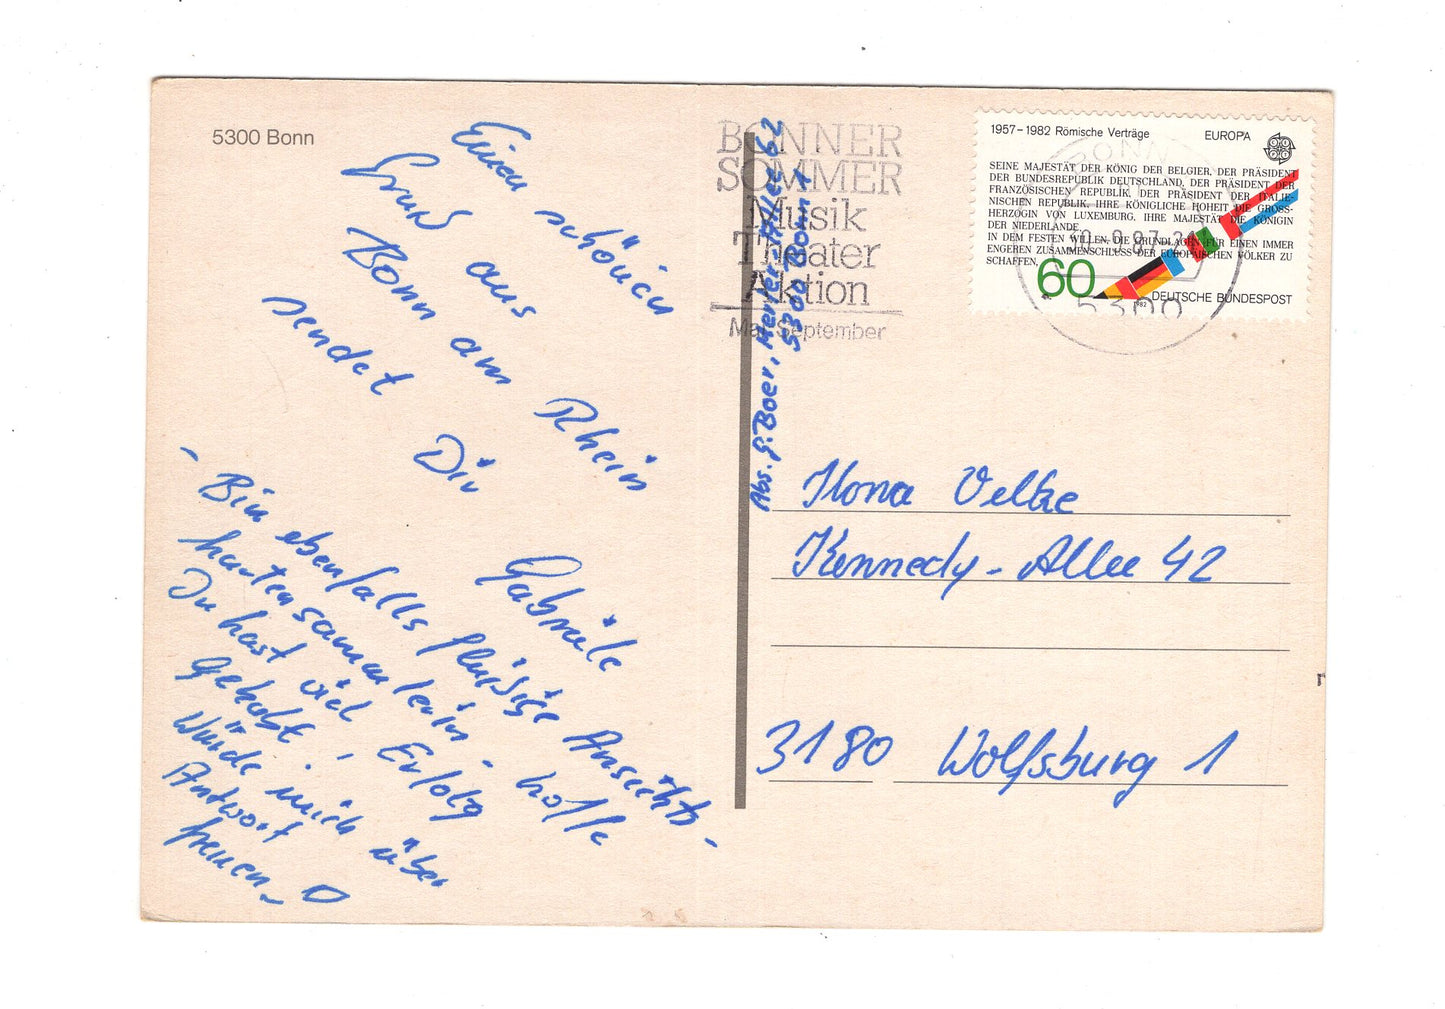 5300 Bonn
Einen schönen
Gruß aus
Bonn am Rhein
sendet Dir
Gabriele
- Bin ebenfalls fleißige Ansichts-
kartensammlerin - hoffe
Du hast viel Erfolg
gehabt,
würde mich über
Antwort
freuen -
BONNER
SOMMER
Musik
Theater
Aktion
Mai-September
Abs. G. Boer, 62
5300 Bonn 1
1957-1982 Römische Verträge
EUROPA
SEINE MAJESTÄT DER KÖNIG DER BELGIER, DER PRÄSIDENT
DER BUNDESREPUBLIK DEUTSCHLAND, DER PRÄSIDENT DER
FRANZÖSISCHEN REPUBLIK, DER PRÄSIDENT DER ITALIE-
NISCHEN REPUBLIK, IHRE KÖNIGLICHE HOHEIT DIE GROSS-
HERZOGIN VON LUXEMBURG, IHRE MAJESTÄT DIE KÖNIGIN
DER NIEDERLANDE,
IN DEM FESTEN WILLEN, DIE GRUNDLAGEN FÜR EINEN IMMER
ENGEREN ZUSAMMENSCHLUSS DER EUROPÄISCHEN VÖLKER ZU
SCHAFFEN,
60
1982
DEUTSCHE BUNDESPOST
BONN
5300
Ilona Velke
Kennedy-Allee 42
3180 Wolfsburg 1